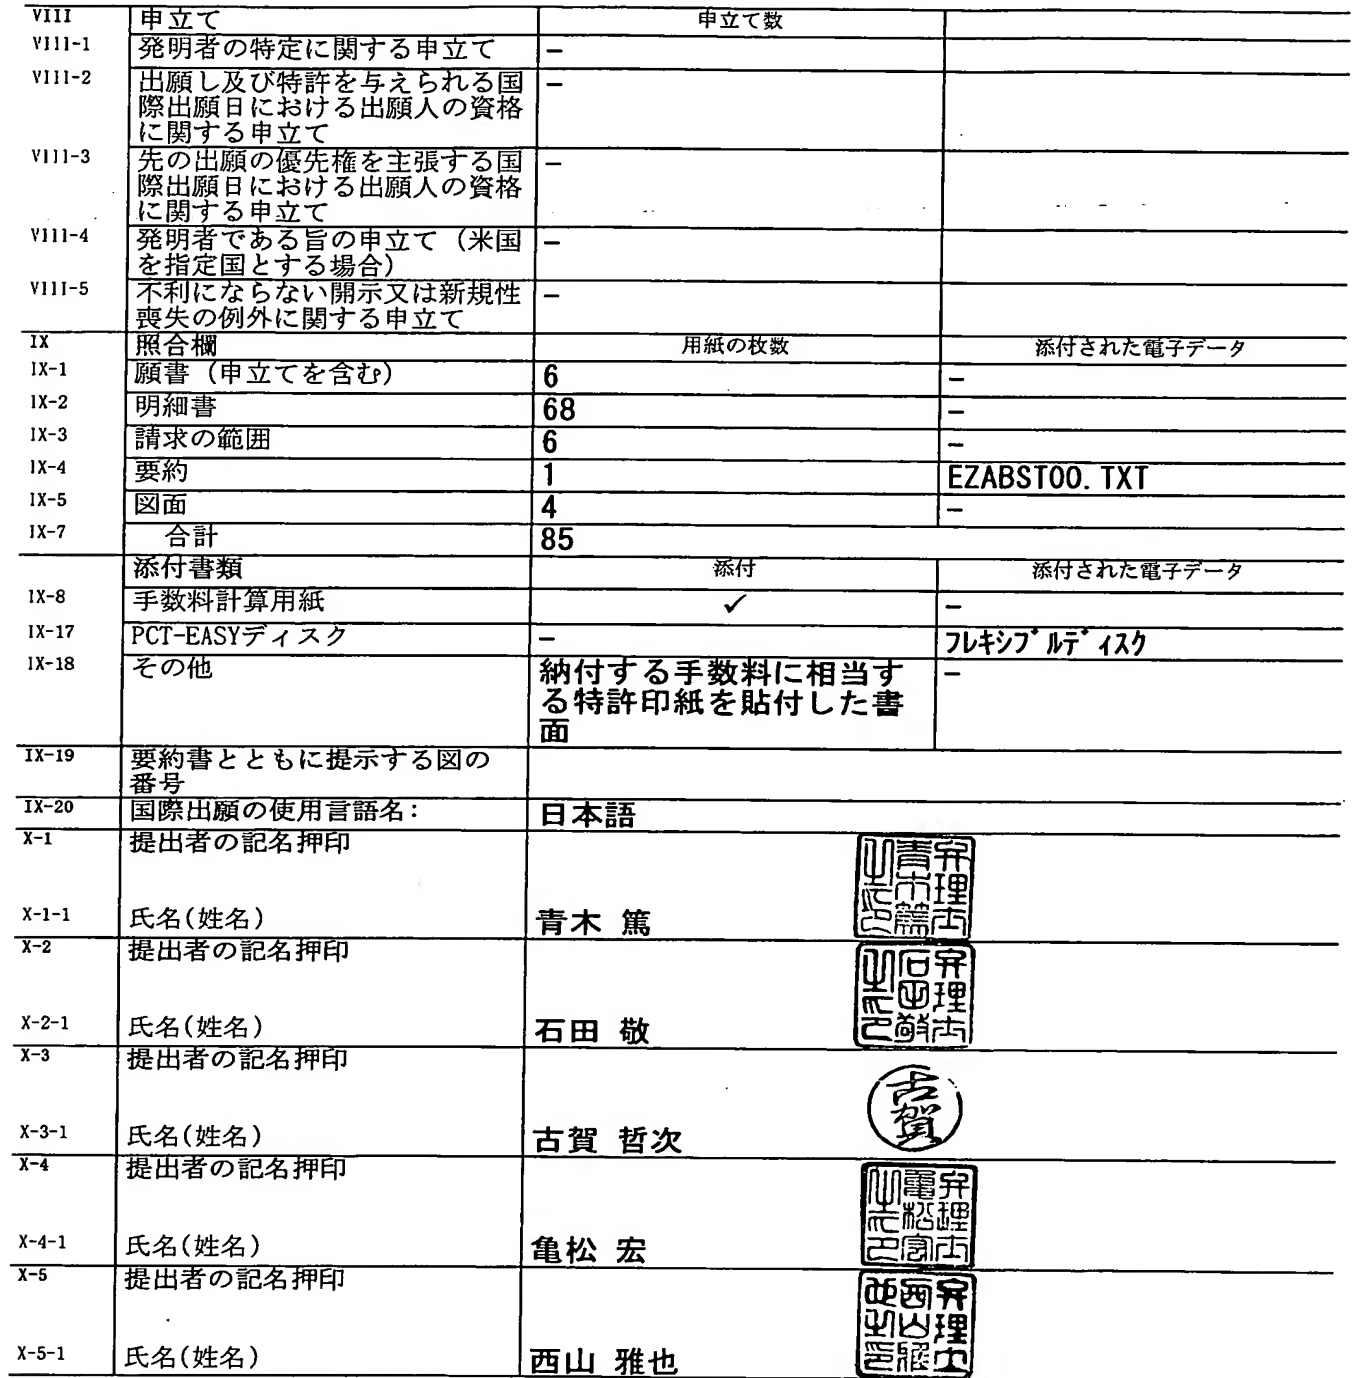 VIII 申立て 申立て数
VIII-1 発明者の特定に関する申立て –
VIII-2 出願し及び特許を与えられる国 –
際出願日における出願人の資格
に関する申立て
VIII-3 先の出願の優先権を主張する国 –
際出願日における出願人の資格
に関する申立て
VIII-4 発明者である旨の申立て（米国 –
を指定国とする場合）
VIII-5 不利にならない開示又は新規性 –
喪失の例外に関する申立て
IX 照合欄 用紙の枚数 添付された電子データ
IX-1 願書（申立てを含む） 6 –
IX-2 明細書 68 –
IX-3 請求の範囲 6 –
IX-4 要約 1 EZABST00.TXT
IX-5 図面 4 –
IX-7 合計 85
添付書類 添付 添付された電子データ
IX-8 手数料計算用紙 ✓ –
IX-17 PCT-EASYディスク – フレキシブルディスク
IX-18 その他 納付する手数料に相当す –
る特許印紙を貼付した書
面
IX-19 要約書とともに提示する図の
番号
IX-20 国際出願の使用言語名： 日本語
X-1 提出者の記名押印
弁理士青木篤之印
X-1-1 氏名(姓名) 青木 篤
X-2 提出者の記名押印
弁理士石田敬之印
X-2-1 氏名(姓名) 石田 敬
X-3 提出者の記名押印
古賀
X-3-1 氏名(姓名) 古賀 哲次
X-4 提出者の記名押印
弁理士亀松宏之印
X-4-1 氏名(姓名) 亀松 宏
X-5 提出者の記名押印
弁理士西山雅也之印
X-5-1 氏名(姓名) 西山 雅也